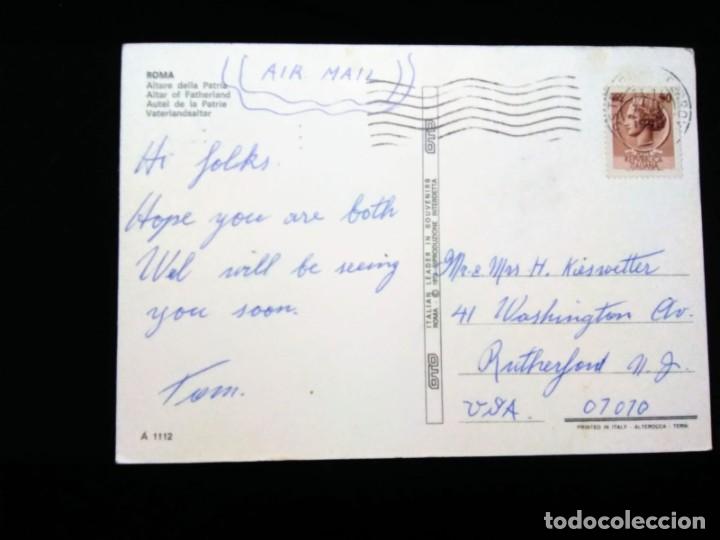 ROMA
Altare della Patria
Altar of Fatherland
Autel de la Patrie
Vaterlandsaltar
AIR MAIL
Hi folks.
Hope you are both
Wel will be seeing
you soon.
Tom.
A 1112
OTO
ITALIAN LEADER IN SOUVENIRS
ROMA - © RIPRODUZIONE INTERDETTA
OTO
90
REPVBBLICA
ITALIANA
Mr. & Mrs H. Kieswetter
41 Washington Av.
Rutherford N.J.
USA. 07070
PRINTED IN ITALY - ALTEROCCA - TERNI
todocoleccion
todocoleccion.net